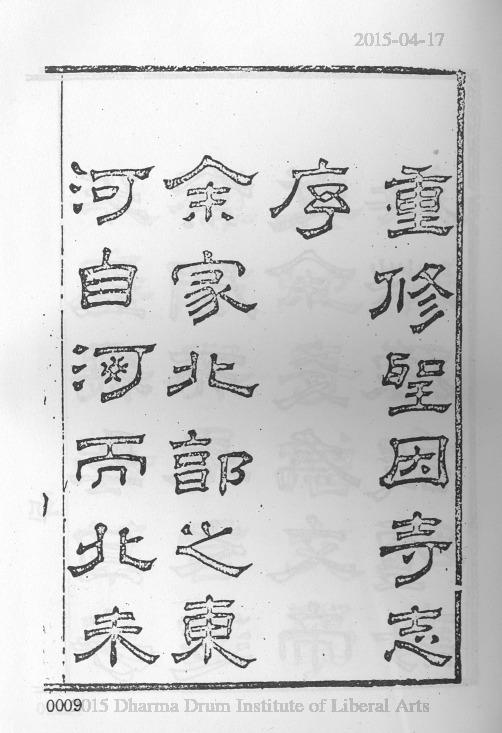 2015-04-17
重修聖因寺志
序
余家北部之東
河自河而北未
0009
2015 Dharma Drum Institute of Liberal Arts